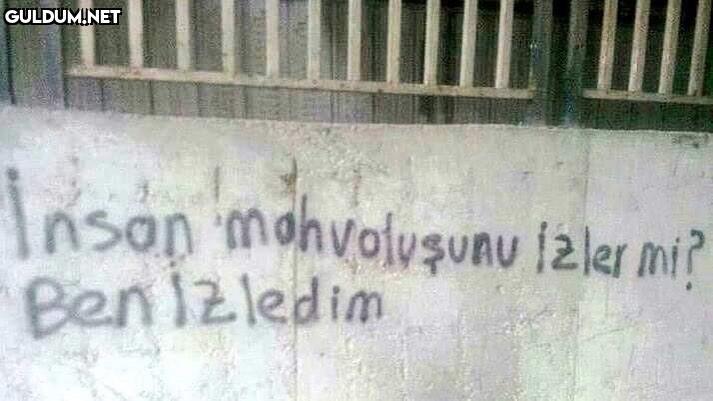 GULDUM.NET
İnsan mahvoluşunu izler mi?
Ben izledim